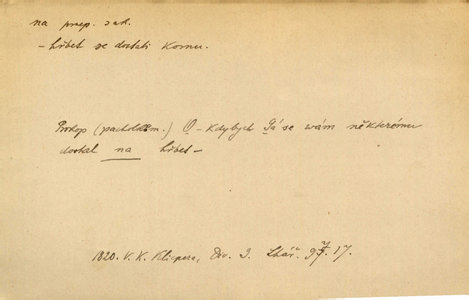 na praep. s ak.
– hřbet se dostati komu.
Prokop (pacholkům.) O – kdybych Gá se wám některému
dostal na hřbet –
1820. V. K. Klicpera, Div. 3. Lhář. 97. 17.